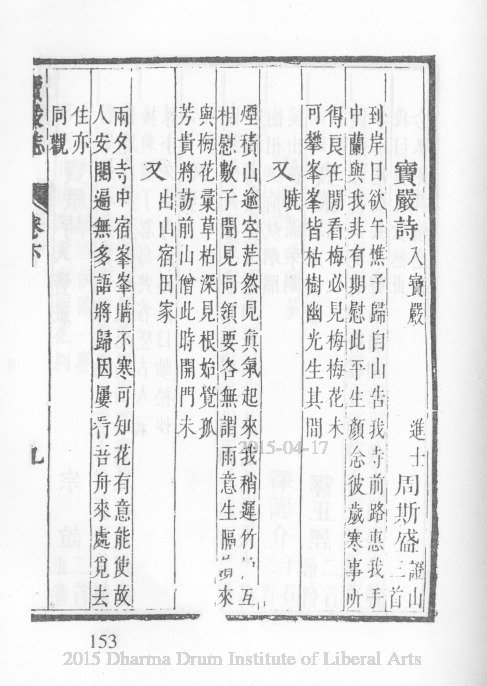 寶嚴詩 入寶嚴 進士周斯盛 證山 三首
到岸日欲午樵子歸自山告我寺前路惠我手
中蘭與我非有期慰此平生顏念彼歲寒事所
得良在閒看梅必見梅梅花未
可攀峯峯皆枯樹幽光生其間
又 曉
煙積山逾空茫然見真氣起來我稍遲竹 互
相慰數子聞見同領要各無謂雨意生隔 來
與梅花彙草枯深見根始覺孤
芳貴將訪前山僧此時開門未
又 出山宿田家
兩夕寺中宿峯峯晴不寒可知花有意能使故
人安閒遍無多語將歸因屢 吾舟來處覓去
住亦
同觀
寶嚴志 卷下 九
2015-04-17
153
2015 Dharma Drum Institute of Liberal Arts